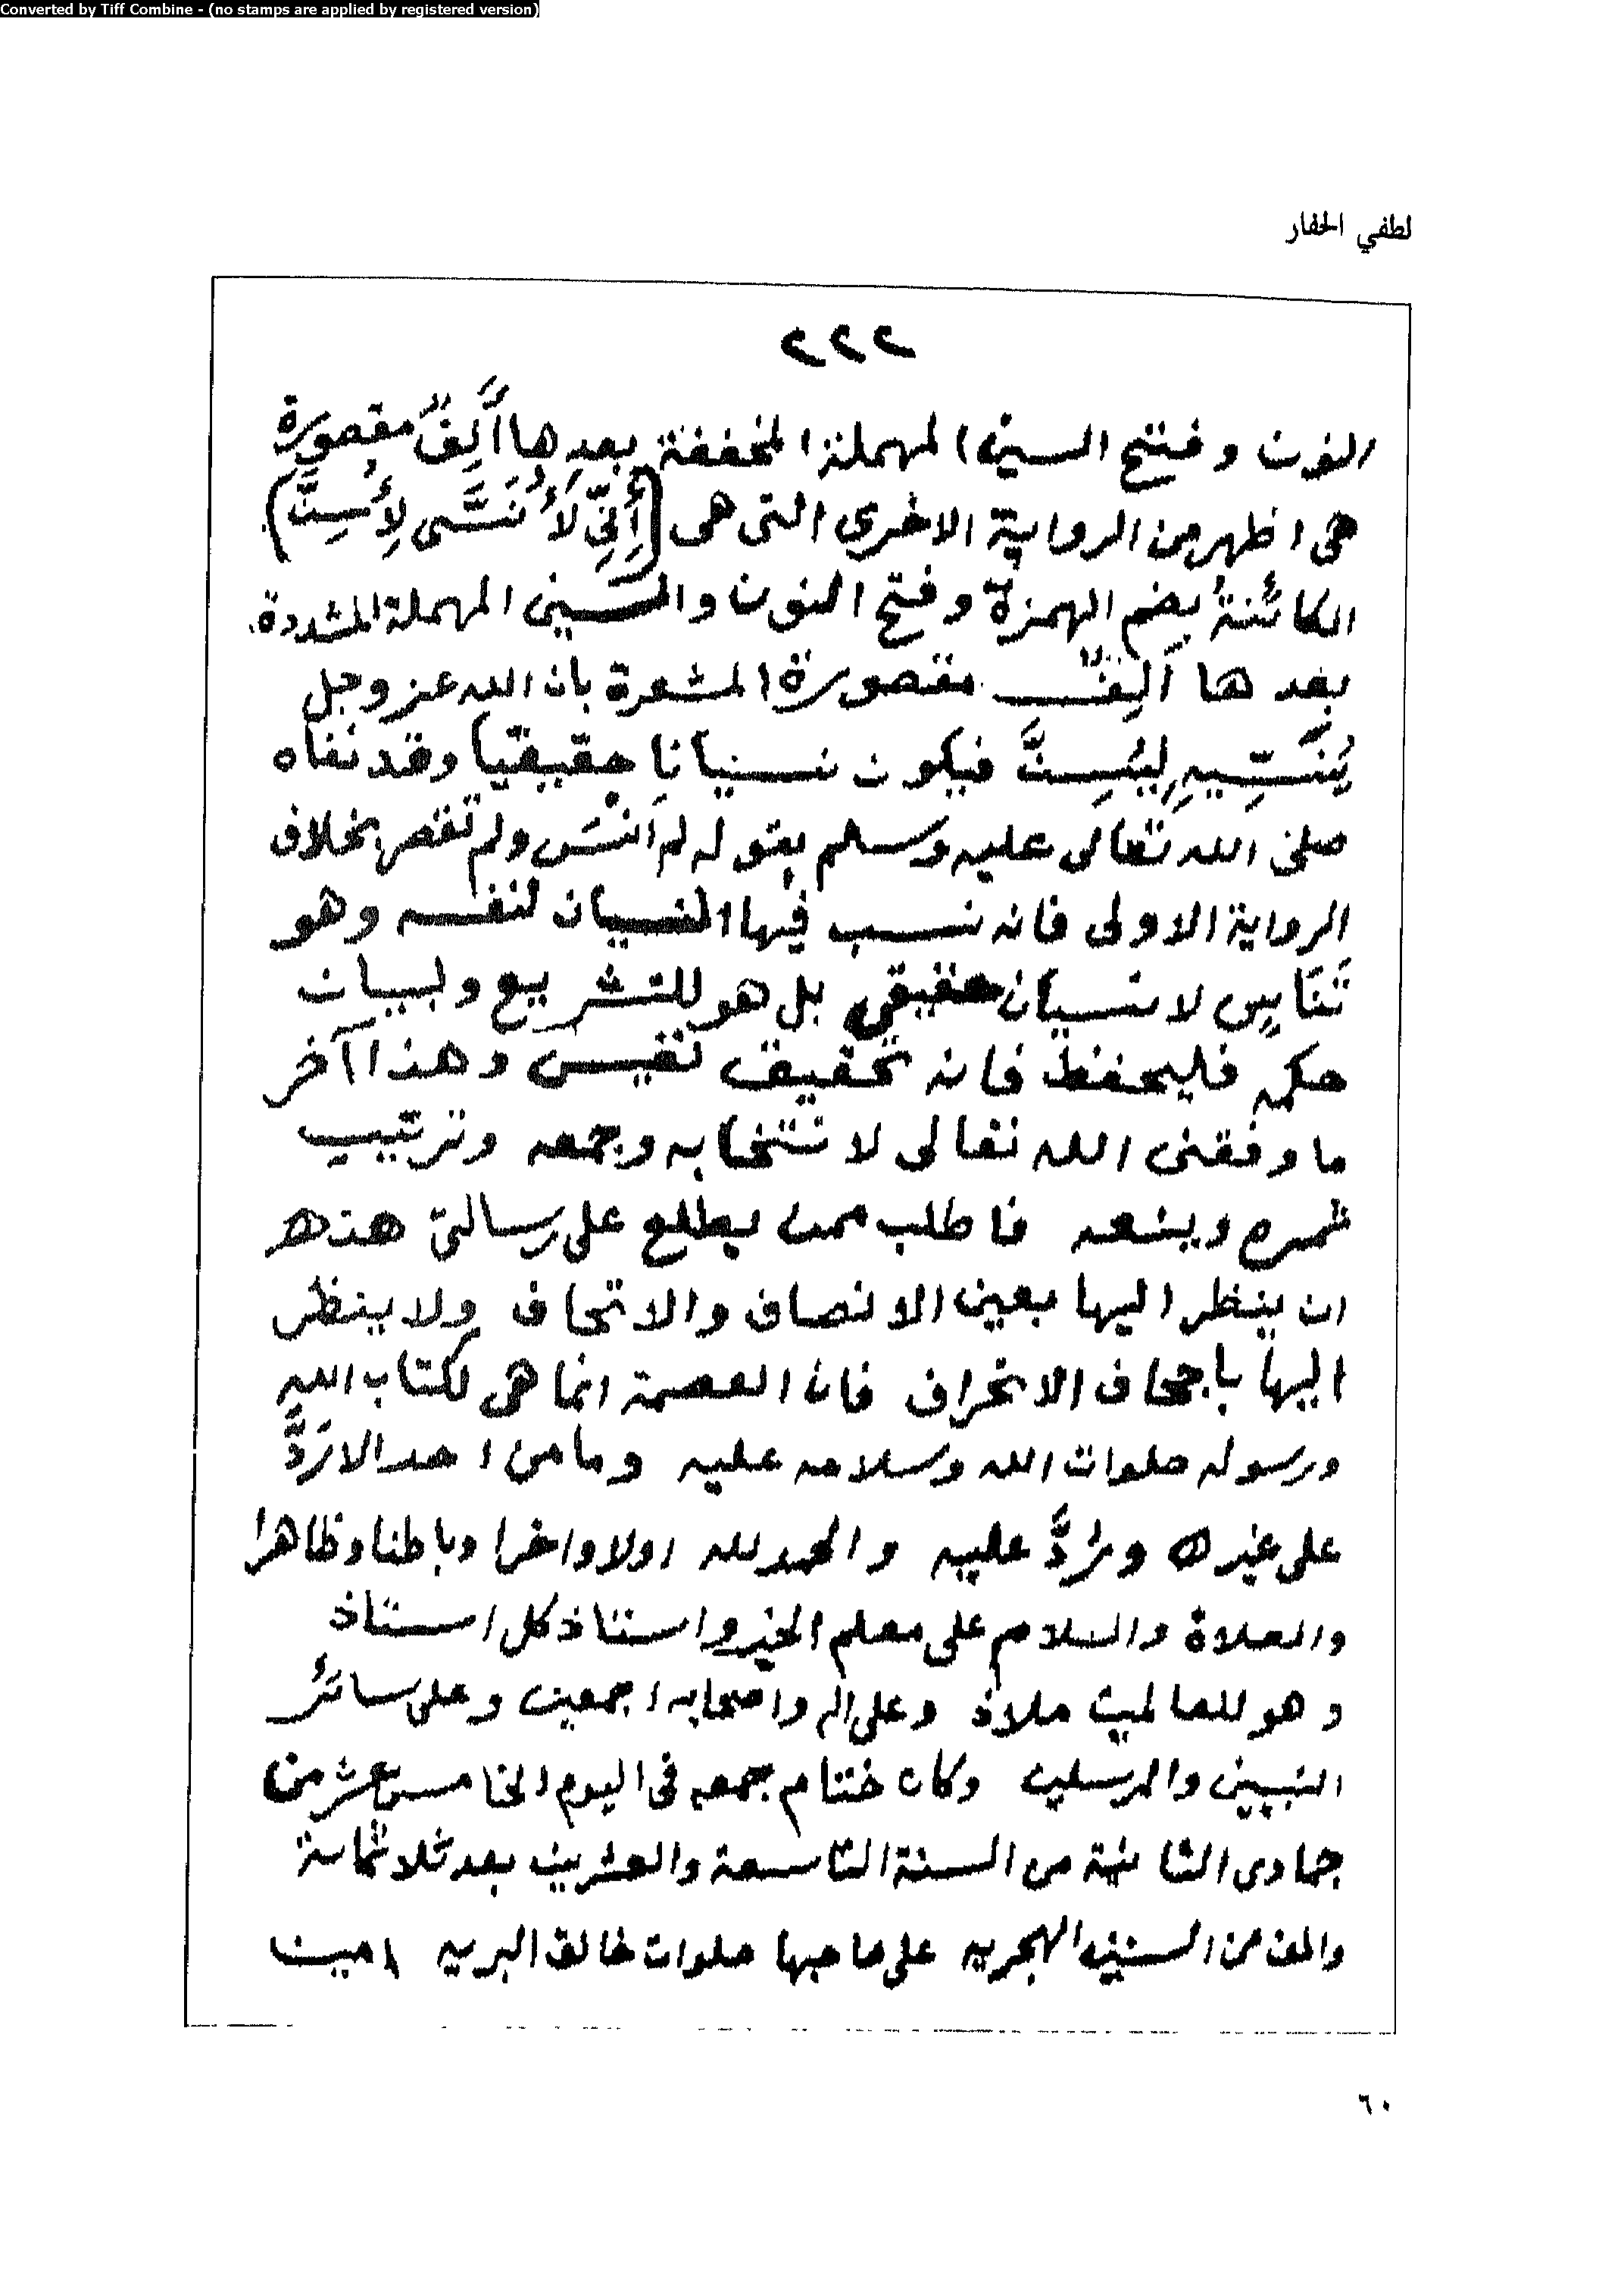 Converted by Tiff Combine - (no stamps are applied by registered version)
لطفي الحفار
٢٢٢
النون وفتح السين المهملة المخففة بعدها أَلِفٌ مقصورة
هى اظهر من الرواية الاخرى التى هى (إِنِّي لَأُنَسَّى لِأَسُنَّ)
الكائنةُ بضم الهمزة وفتح النون والسين المهملة المشددة.
بعدها أَلِفٌ مقصورة المشعرة بان الله عز وجل
يُنَسِّيهِ لِيَسُنَّ فيكون نسيانا حقيقيا وقد نفاه
صلى الله تعالى عليه وسلم بقوله لم اَنْسَ ولم تقصر بخلاف
الرواية الاولى فانه نسب فيها النسيان لنفسه وهو
تَنَاسٍ لا نسيان حقيقى بل هو للتشريع ولبيان
حكمه فليحفظ فانه تحقيق نفيس وهذا آخر
ما وفقنى الله تعالى لانتخابه وجمعه وترتيب
ثمره وينعه فاطلب ممن يطلع على رسالتى هذه
ان ينظر اليها بعين الانصاف والاتحاف ولا ينظر
اليها باجحاف الانحراف فان العصمة انما هى لكتاب الله
ورسوله صلوات الله وسلامه عليه وما من احد الا رَدَّ
على غيره ورُدَّ عليه والحمد لله اولا واخرا وباطنا وظاهرا
والصلاة والسلام على معلم الخير واستاذ كل استاذ
وهو للعالمين ملاذ وعلى اله واصحابه اجمعين وعلى سائر
النبيين والمرسلين وكان ختام جمعه فى اليوم الخامس عشر من
جمادى الثانية من السنة التاسعة والعشرين بعد ثلاثماىة
والف من السنين الهجريه على صاحبها صلوات خالق البريه امين
٦٠